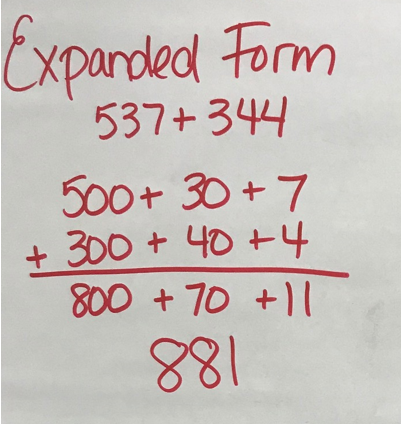 Expanded Form
537+344
500+ 30 + 7
+ 300 + 40 + 4
800 + 70 + 11
881